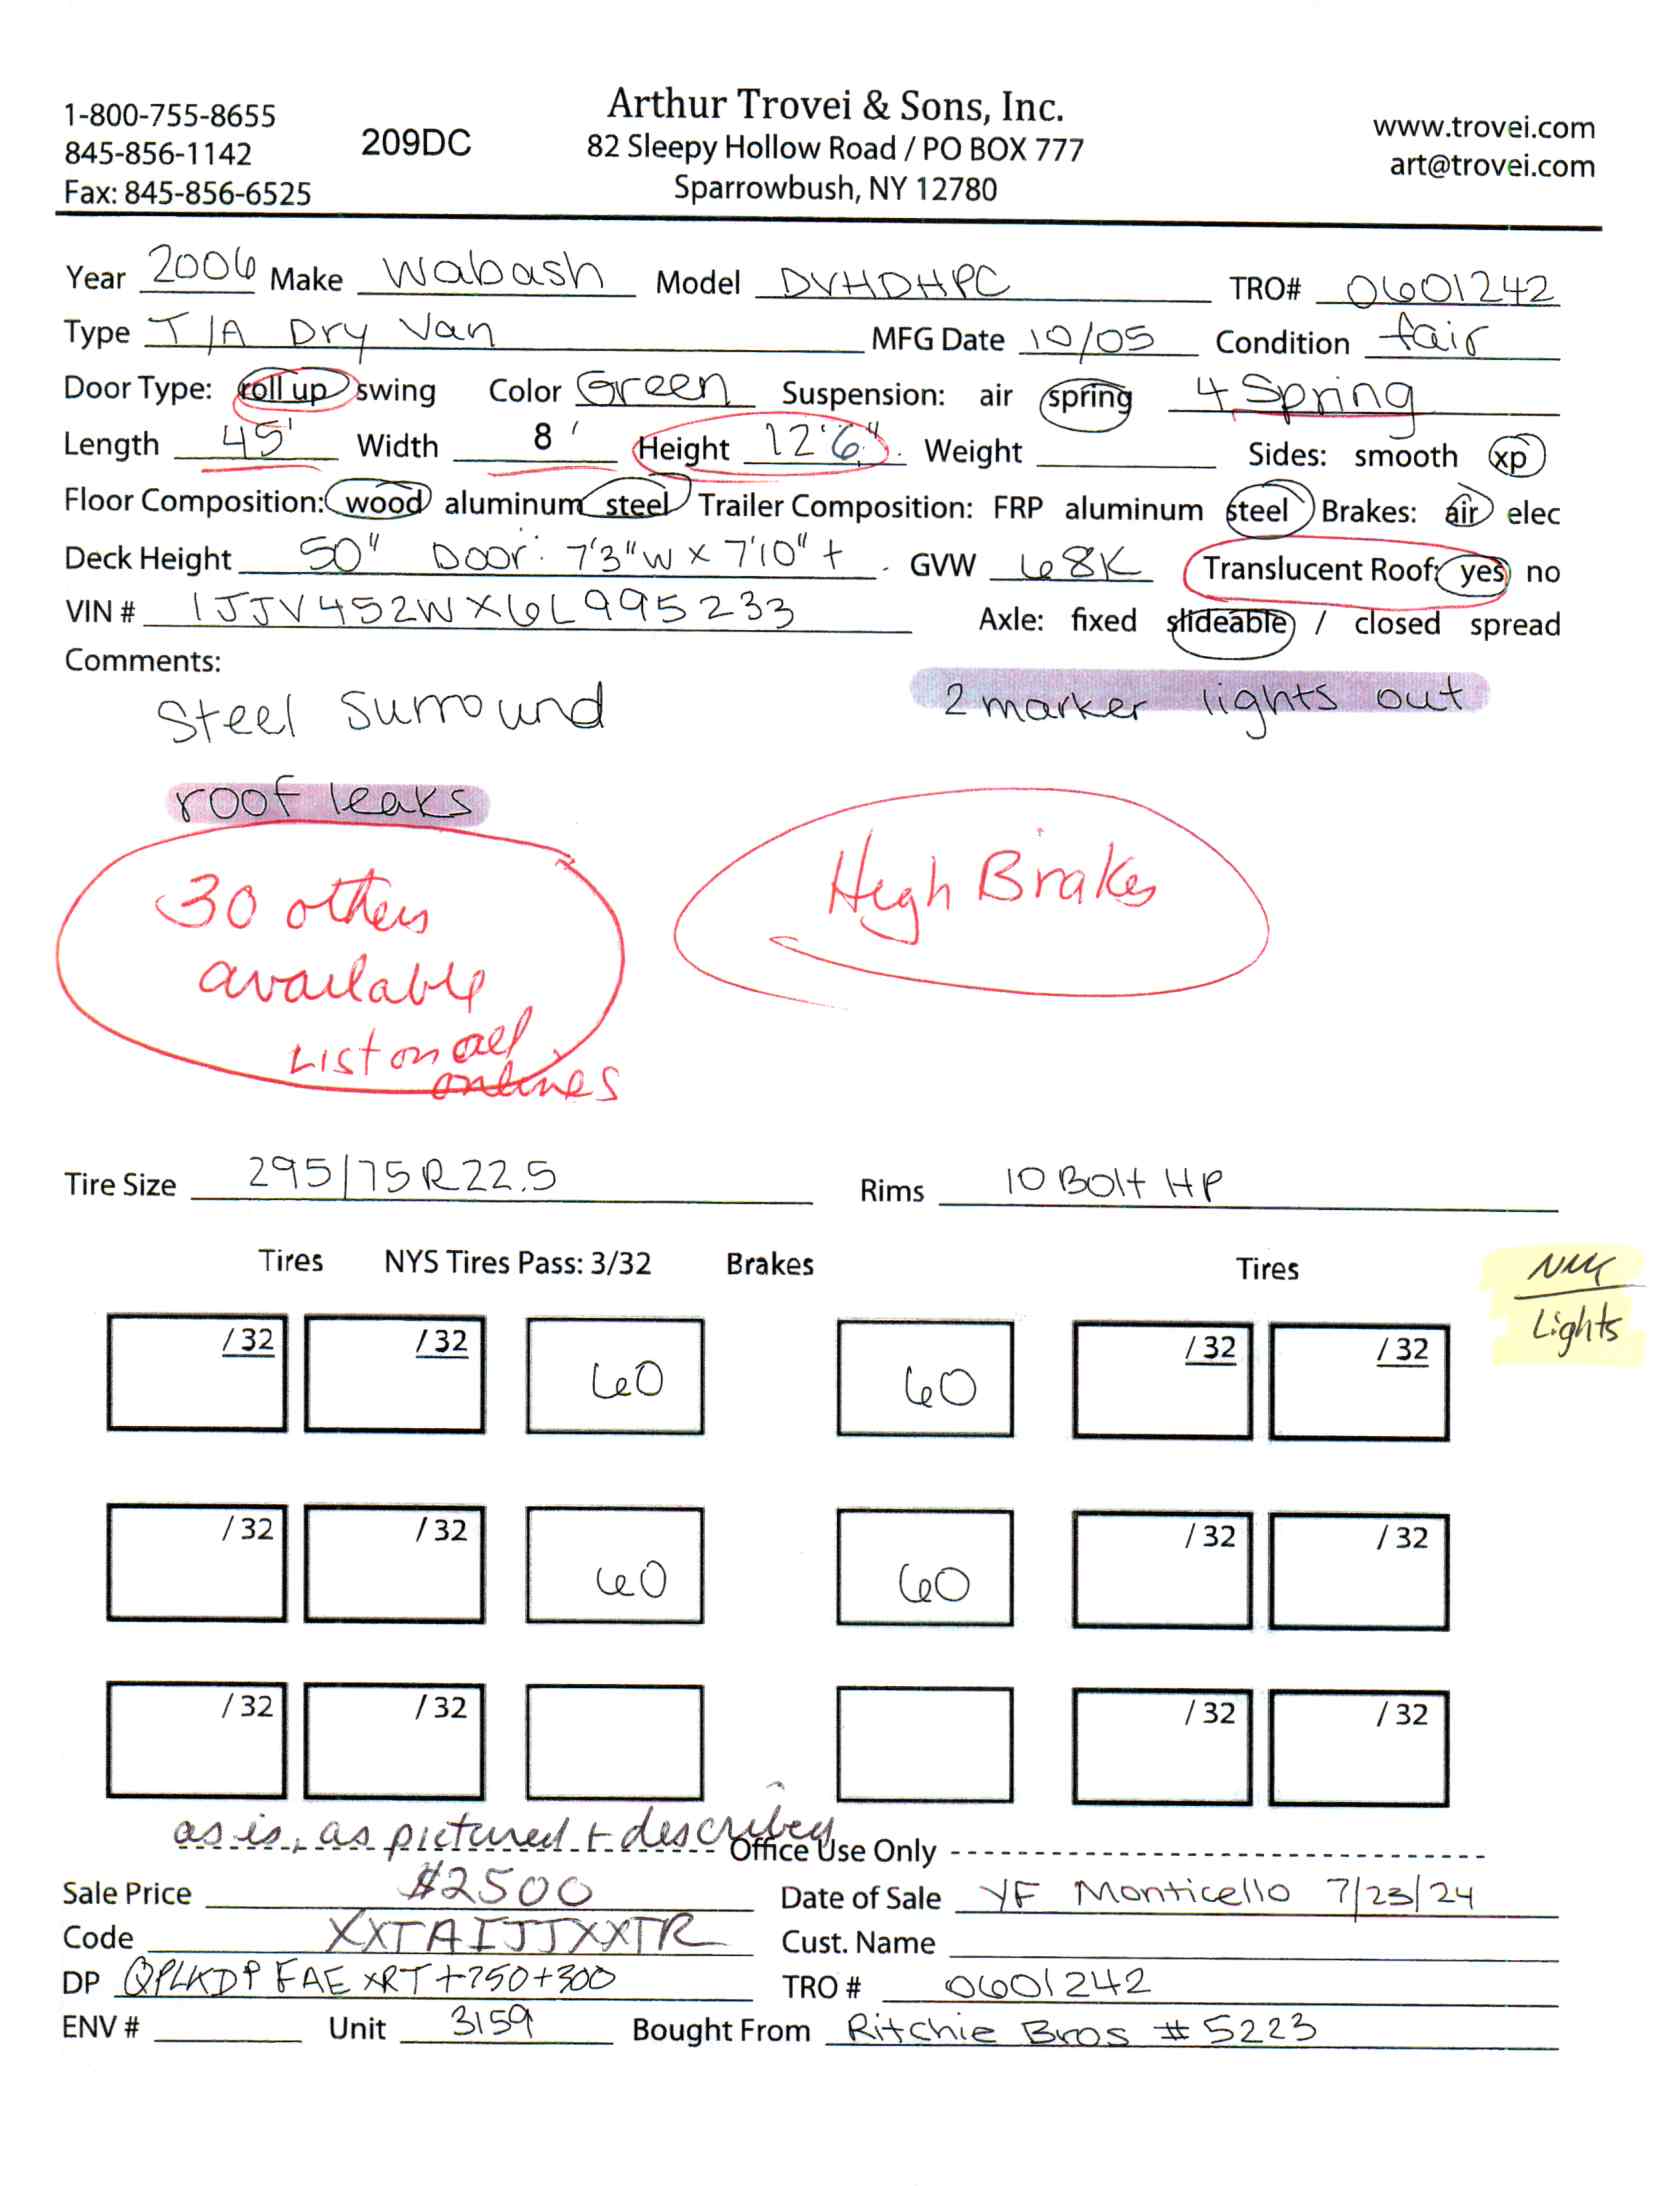 1-800-755-8655
845-856-1142
Fax: 845-856-6525
209DC
Arthur Trovei & Sons, Inc.
82 Sleepy Hollow Road / PO BOX 777
Sparrowbush, NY 12780
www.trovei.com
art@trovei.com
Year 2006 Make Wabash Model DVHDHPC TRO# 0601242
Type T/A Dry Van MFG Date 10/05 Condition fair
Door Type: roll up swing Color Green Suspension: air spring 4 Spring
Length 45' Width 8' Height 12'6" Weight Sides: smooth xp
Floor Composition: wood aluminum steel Trailer Composition: FRP aluminum steel Brakes: air elec
Deck Height 50" Door: 7'3"W x 7'10" + GVW 68K Translucent Roof: yes no
VIN # 1JJV452WX6L995233 Axle: fixed slideable / closed spread
Comments:
Steel Surround 2 marker lights out
roof leaks
30 others
available
List on all
onlines
High Brakes
Tire Size 295/75R22.5 Rims 10 Bolt HP
Tires NYS Tires Pass: 3/32 Brakes Tires
Lights
/32 /32 60 60 /32 /32
/32 /32 60 60 /32 /32
/32 /32 /32 /32
as is, as pictured + described
Office Use Only
Sale Price $2500 Date of Sale YF Monticello 7/23/24
Code XXTAIJJXXTR Cust. Name
DP QPLKDP FAE XRT +750+300 TRO # 0601242
ENV # Unit 3159 Bought From Ritchie Bros #5223